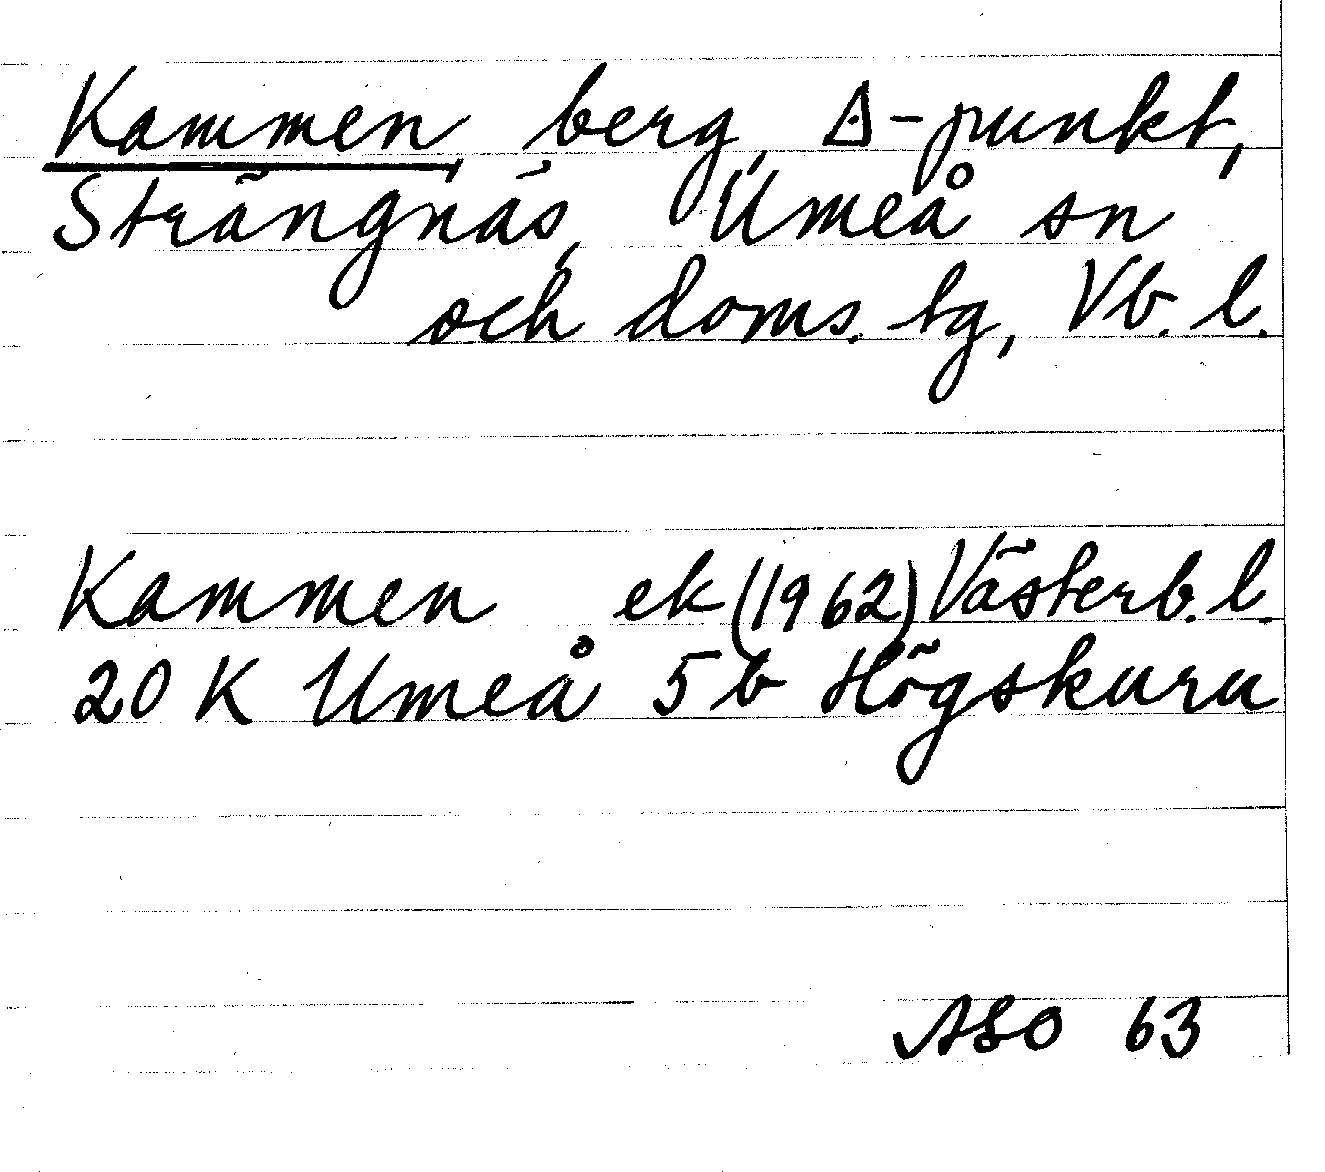 Kammen, berg, Δ-punkt,
Strängnäs, Umeå sn
och doms. tg, Vb. l.
Kammen ek (1962) Västerb. l.
20 K Umeå 5b Högskuru
ASO 63